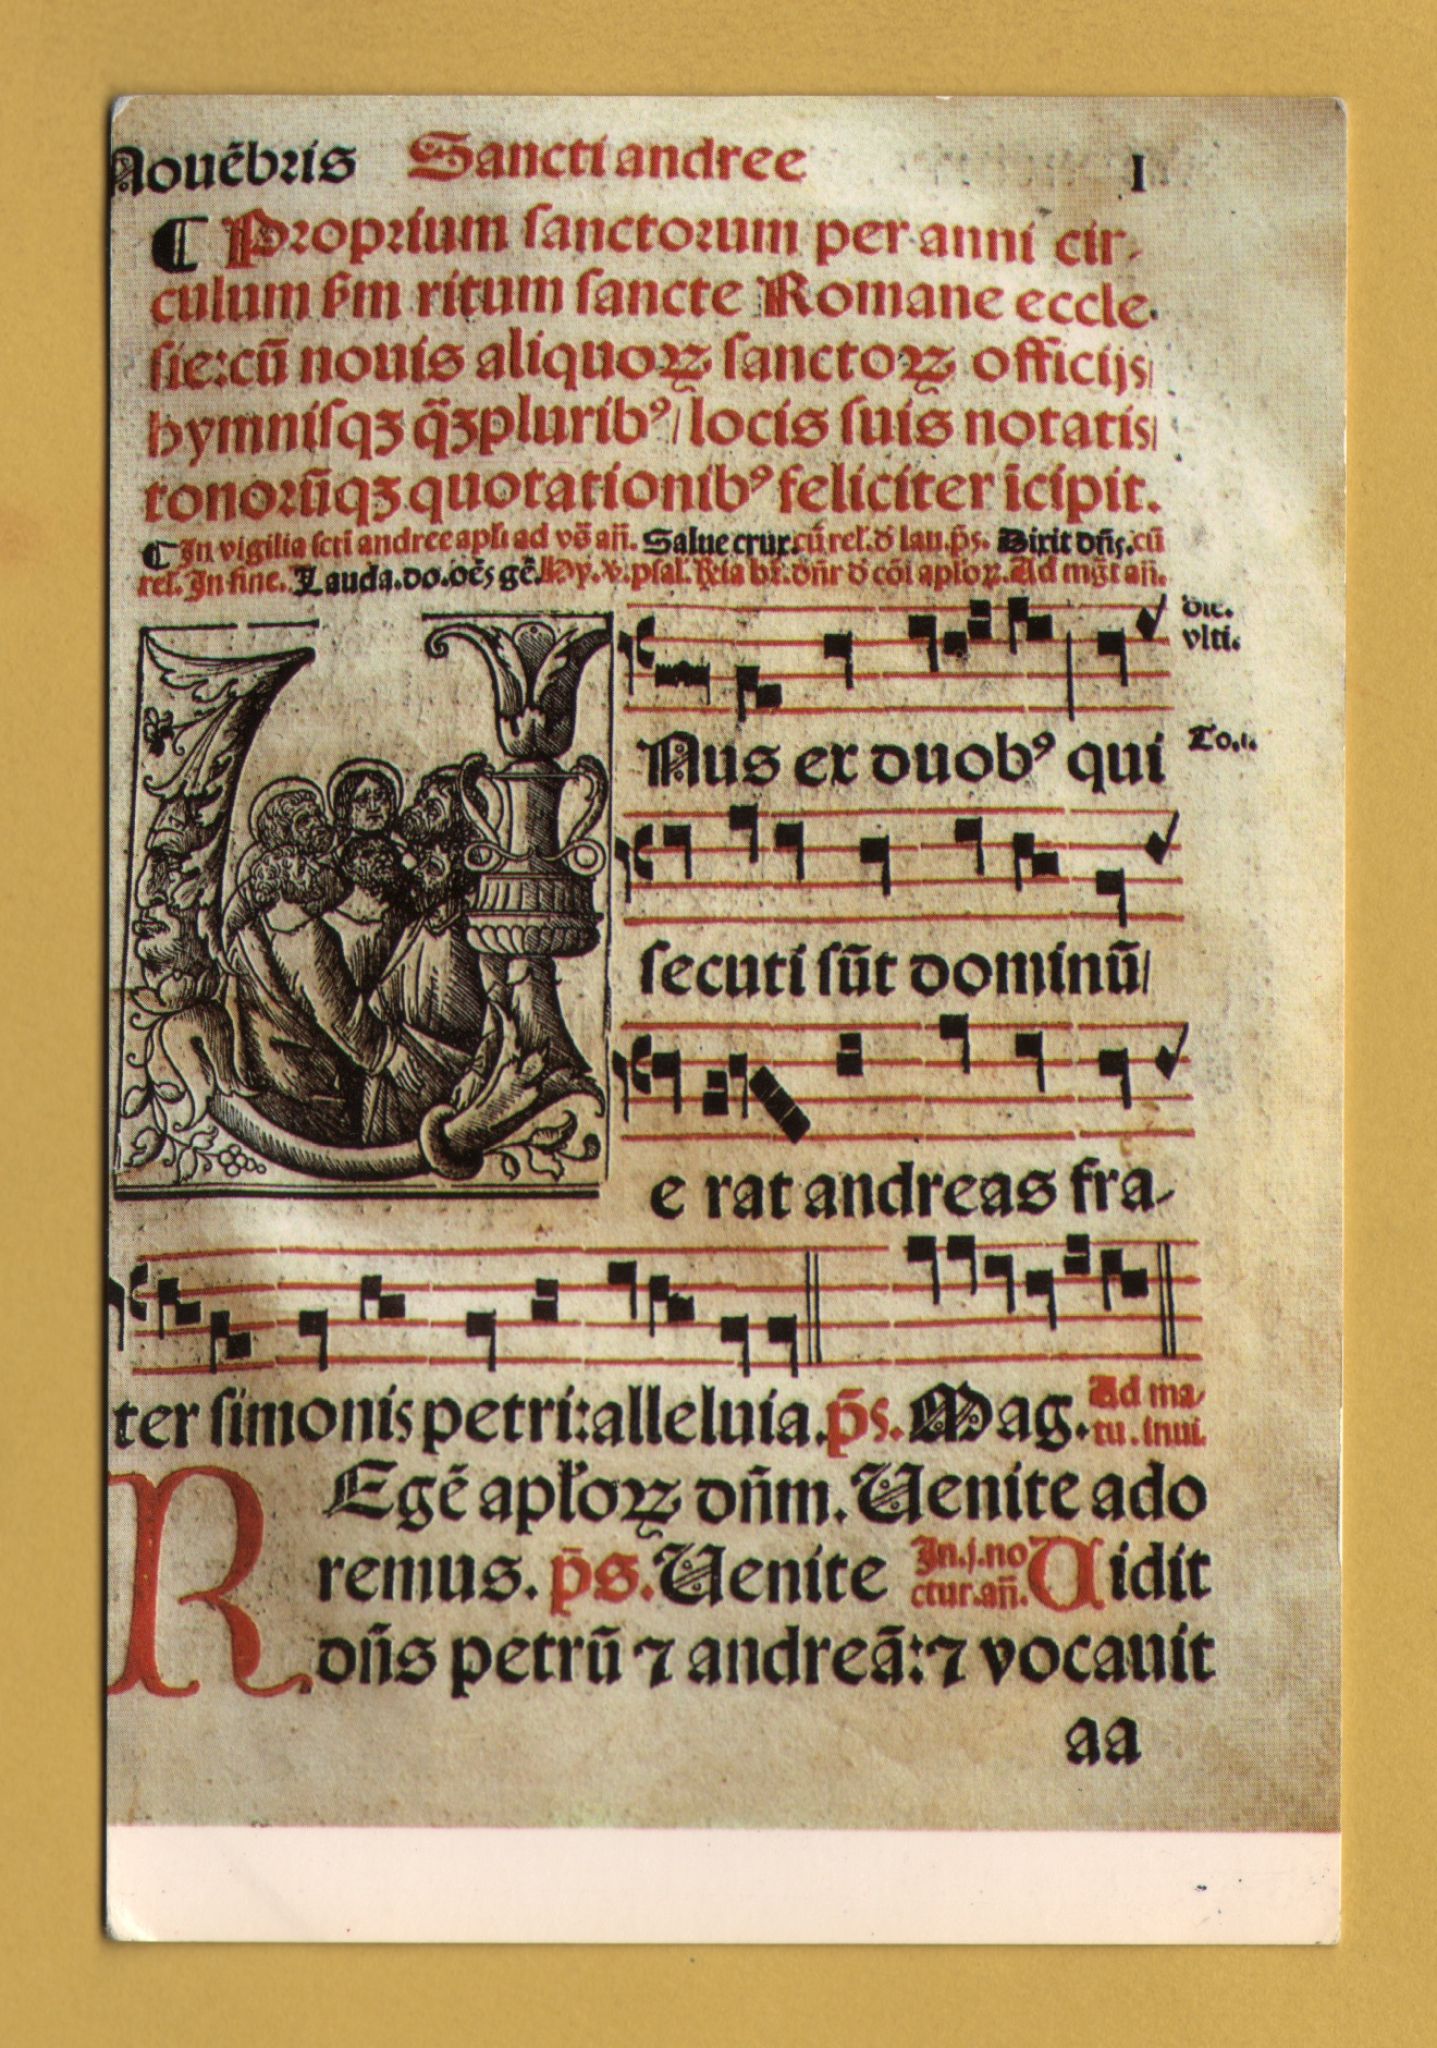 Nouēbris Sancti andree I
¶ Proprium sanctorum per anni cir-
culum scd'm ritum sancte Romane eccle-
sie: cū nouis aliquoꝝ sanctoꝝ officijs/
hymnisqꝫ q̄ꝫpluribꝰ/ locis suis notatis/
tonorūqꝫ quotationibꝰ feliciter īcipit.
¶ In vigilia scti andree apłi ad vō añ. Salue crux. cū rel'. d' lau. p̄s. Dixit dn̄s. cū
rel'. In fine. Lauda. do. oēs gē. Hy. v. psal'. R̄ia br̄. dn̄r d' cōi apłoꝝ. Ad mḡt añ.
die.
vlti.
Nus ex duobꝰ qui
To.i.
secuti sūt dominū/
e rat andreas fra-
ter simonis petri: alleluia. p̄s. Mag. Ad ma-
tu. inui.
REgē apłoꝝ dn̄m. Uenite ado
remus. p̄s. Uenite In. j. no
ctur. añ. Uidit
dn̄s petrū ⁊ andreā: ⁊ vocauit
aa